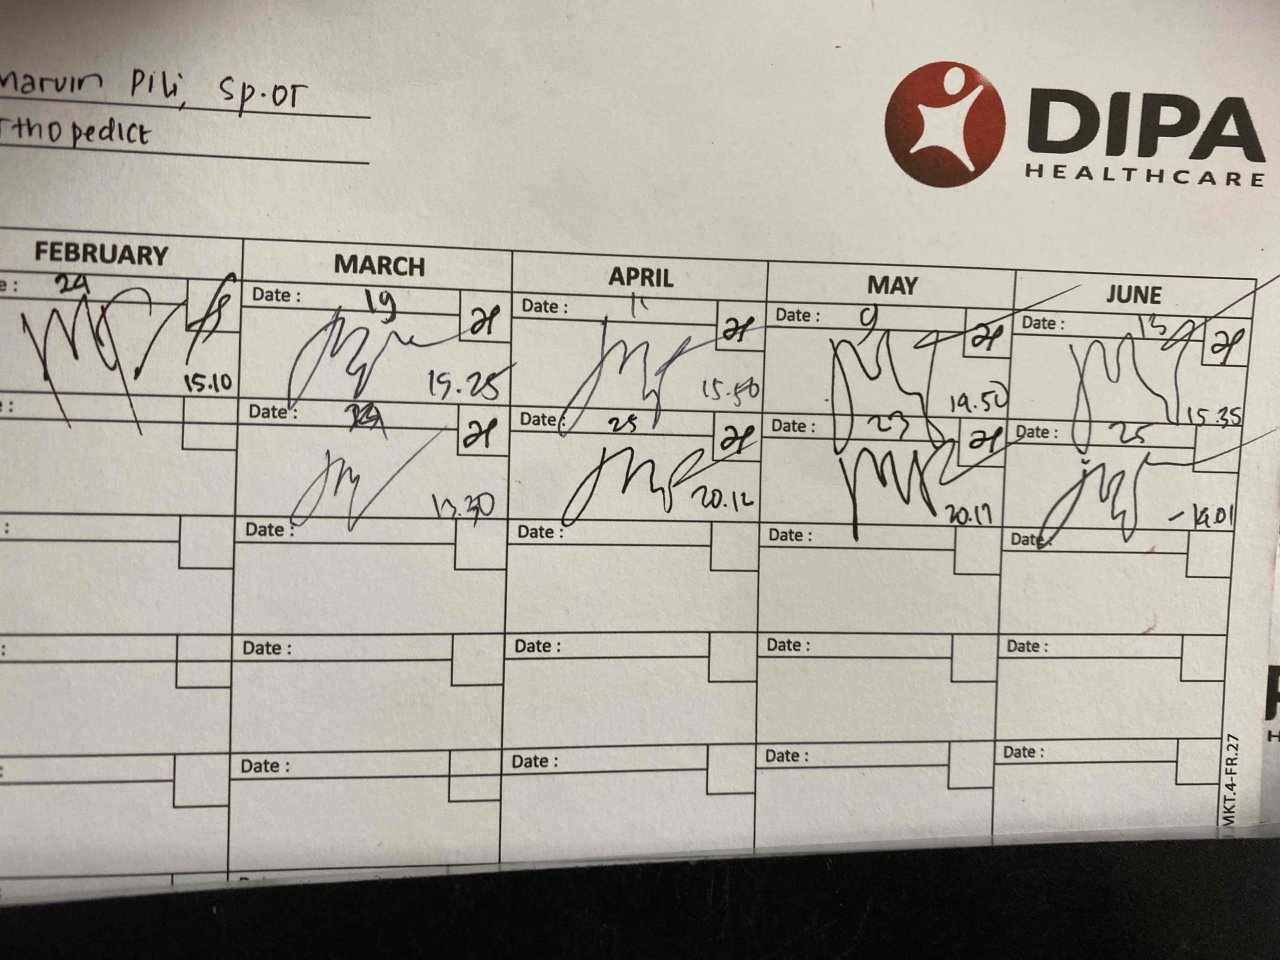 Marvin Pili, Sp.OT
rthopedict
DIPA
HEALTHCARE
FEBRUARY MARCH APRIL MAY JUNE
e: 29 Date: 19 Date: 11 Date: 9 Date: 13
15.10 19.25 15.50 19.50 15.35
: Date: Date: 25 Date: 23 Date: 25
13.30 20.12 20.17 19.01
: Date: Date: Date: Date:
: Date: Date: Date: Date:
: Date: Date: Date: Date:
:
MKT.4-FR.27